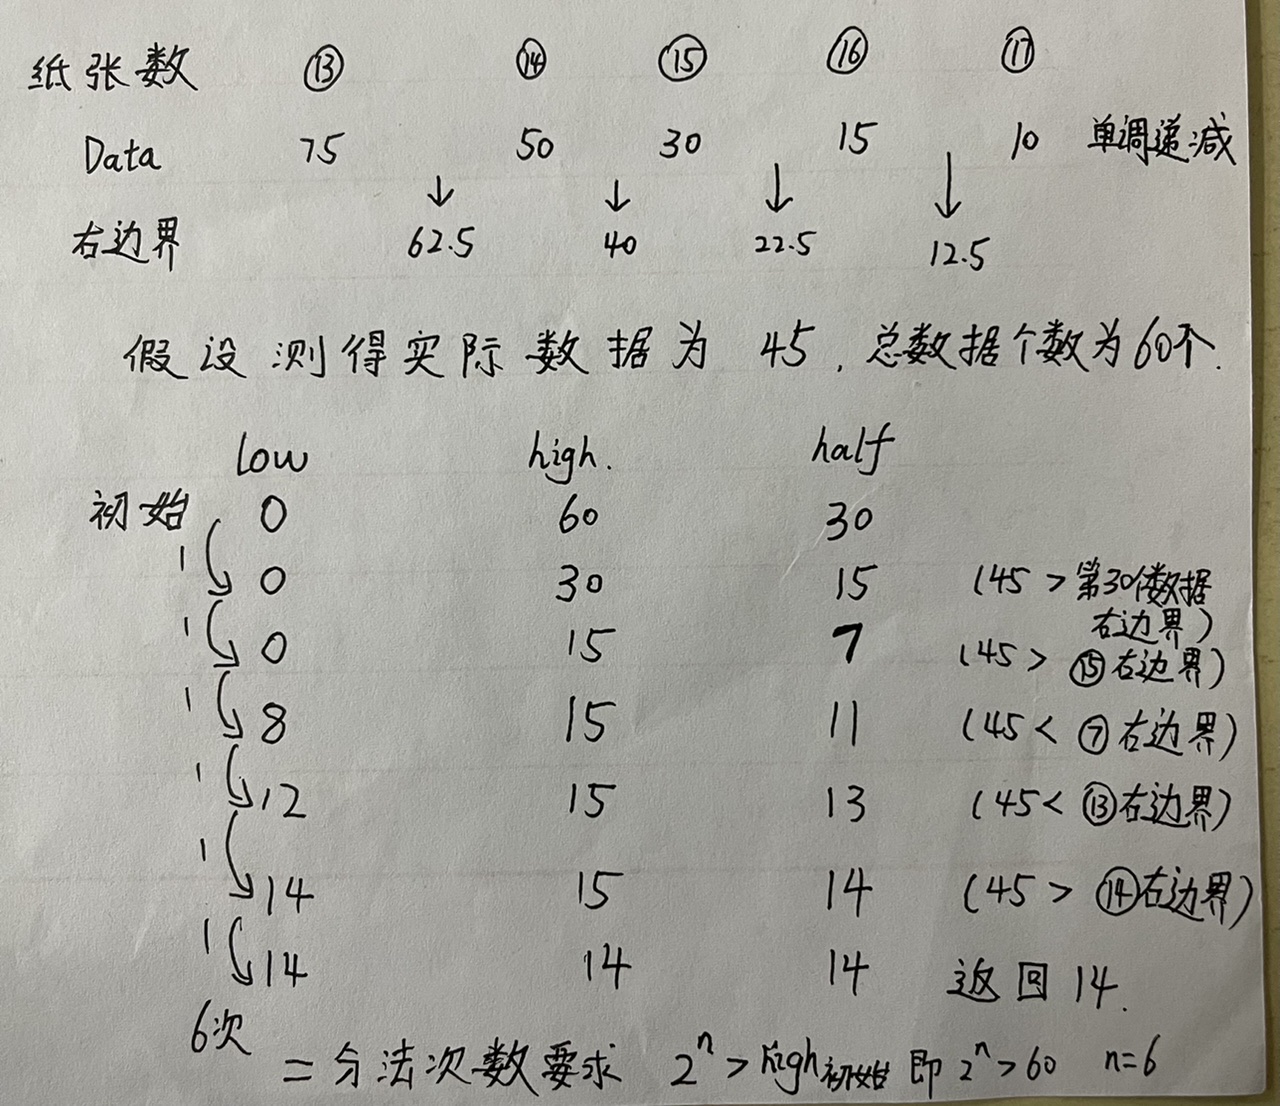 纸张数 ⑬ ⑭ ⑮ ⑯ ⑰
Data 75 50 30 15 10 单调递减
↓ ↓ ↓ ↓
右边界 62.5 40 22.5 12.5
假设测得实际数据为 45，总数据个数为60个.
low high. half
初始 0 60 30
1 0 30 15 (45 > 第30个数据
右边界)
1 0 15 7 (45 > ⑮右边界)
1 8 15 11 (45 < ⑦右边界)
1 12 15 13 (45 < ⑬右边界)
1 14 15 14 (45 > ⑭右边界)
1 14 14 14 返回14.
6次
二分法次数要求 2ⁿ > high初始 即 2ⁿ > 60 n=6